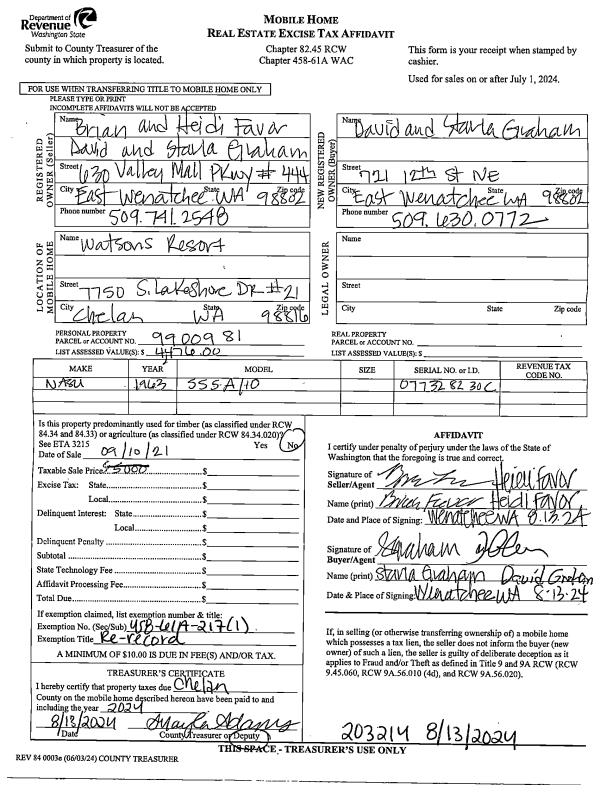 Department of
Revenue
Washington State
Submit to County Treasurer of the
county in which property is located.
MOBILE HOME
REAL ESTATE EXCISE TAX AFFIDAVIT
Chapter 82.45 RCW
Chapter 458-61A WAC
This form is your receipt when stamped by
cashier.
Used for sales on or after July 1, 2024.
FOR USE WHEN TRANSFERRING TITLE TO MOBILE HOME ONLY
PLEASE TYPE OR PRINT
INCOMPLETE AFFIDAVITS WILL NOT BE ACCEPTED
REGISTERED
OWNER (Seller)
Name Brian and Heidi Favor
David and Starla Graham
Street 630 Valley Mall Pkwy # 444
City East Wenatchee State WA Zip code 98802
Phone number 509.741.2548
NEW REGISTERED
OWNER (Buyer)
Name David and Starla Graham
Street 721 12th St NE
City East Wenatchee State WA Zip code 98802
Phone number 509.630.0772
LOCATION OF
MOBILE HOME
Name Watsons Resort
Street 7750 S. Lakeshore DR #21
City Chelan State WA Zip code 98816
LEGAL OWNER
Name
Street
City State Zip code
PERSONAL PROPERTY
PARCEL or ACCOUNT NO. 9900981
LIST ASSESSED VALUE(S): $ 4476.00
REAL PROPERTY
PARCEL or ACCOUNT NO.
LIST ASSESSED VALUE(S): $
MAKE YEAR MODEL SIZE SERIAL NO. or I.D. REVENUE TAX CODE NO.
NASU 1963 55SA/10 077328230C
Is this property predominantly used for timber (as classified under RCW
84.34 and 84.33) or agriculture (as classified under RCW 84.34.020)?
See ETA 3215 Yes No
Date of Sale 09/10/21
Taxable Sale Price 5000 $
Excise Tax: State $
Local $
Delinquent Interest: State $
Local $
Delinquent Penalty $
Subtotal $
State Technology Fee $
Affidavit Processing Fee $
Total Due $
If exemption claimed, list exemption number & title:
Exemption No. (Sec/Sub) 458-61A-217(1)
Exemption Title Re-record
A MINIMUM OF $10.00 IS DUE IN FEE(S) AND/OR TAX.
AFFIDAVIT
I certify under penalty of perjury under the laws of the State of
Washington that the foregoing is true and correct.
Signature of
Seller/Agent Heidi Favor
Name (print) Brian Favor Heidi Favor
Date and Place of Signing: Wenatchee WA 8.13.24
Signature of
Buyer/Agent SGraham
Name (print) Starla Graham David Graham
Date & Place of Signing: Wenatchee WA 8-13-24
If, in selling (or otherwise transferring ownership of) a mobile home
which possesses a tax lien, the seller does not inform the buyer (new
owner) of such a lien, the seller is guilty of deliberate deception as it
applies to Fraud and/or Theft as defined in Title 9 and 9A RCW (RCW
9.45.060, RCW 9A.56.010 (4d), and RCW 9A.56.020).
TREASURER'S CERTIFICATE
I hereby certify that property taxes due Chelan
County on the mobile home described hereon have been paid to and
including the year 2024
8/13/2024 Mayra Adams
Date County Treasurer or Deputy
203214 8/13/2024
THIS SPACE - TREASURER'S USE ONLY
REV 84 0003e (06/03/24) COUNTY TREASURER